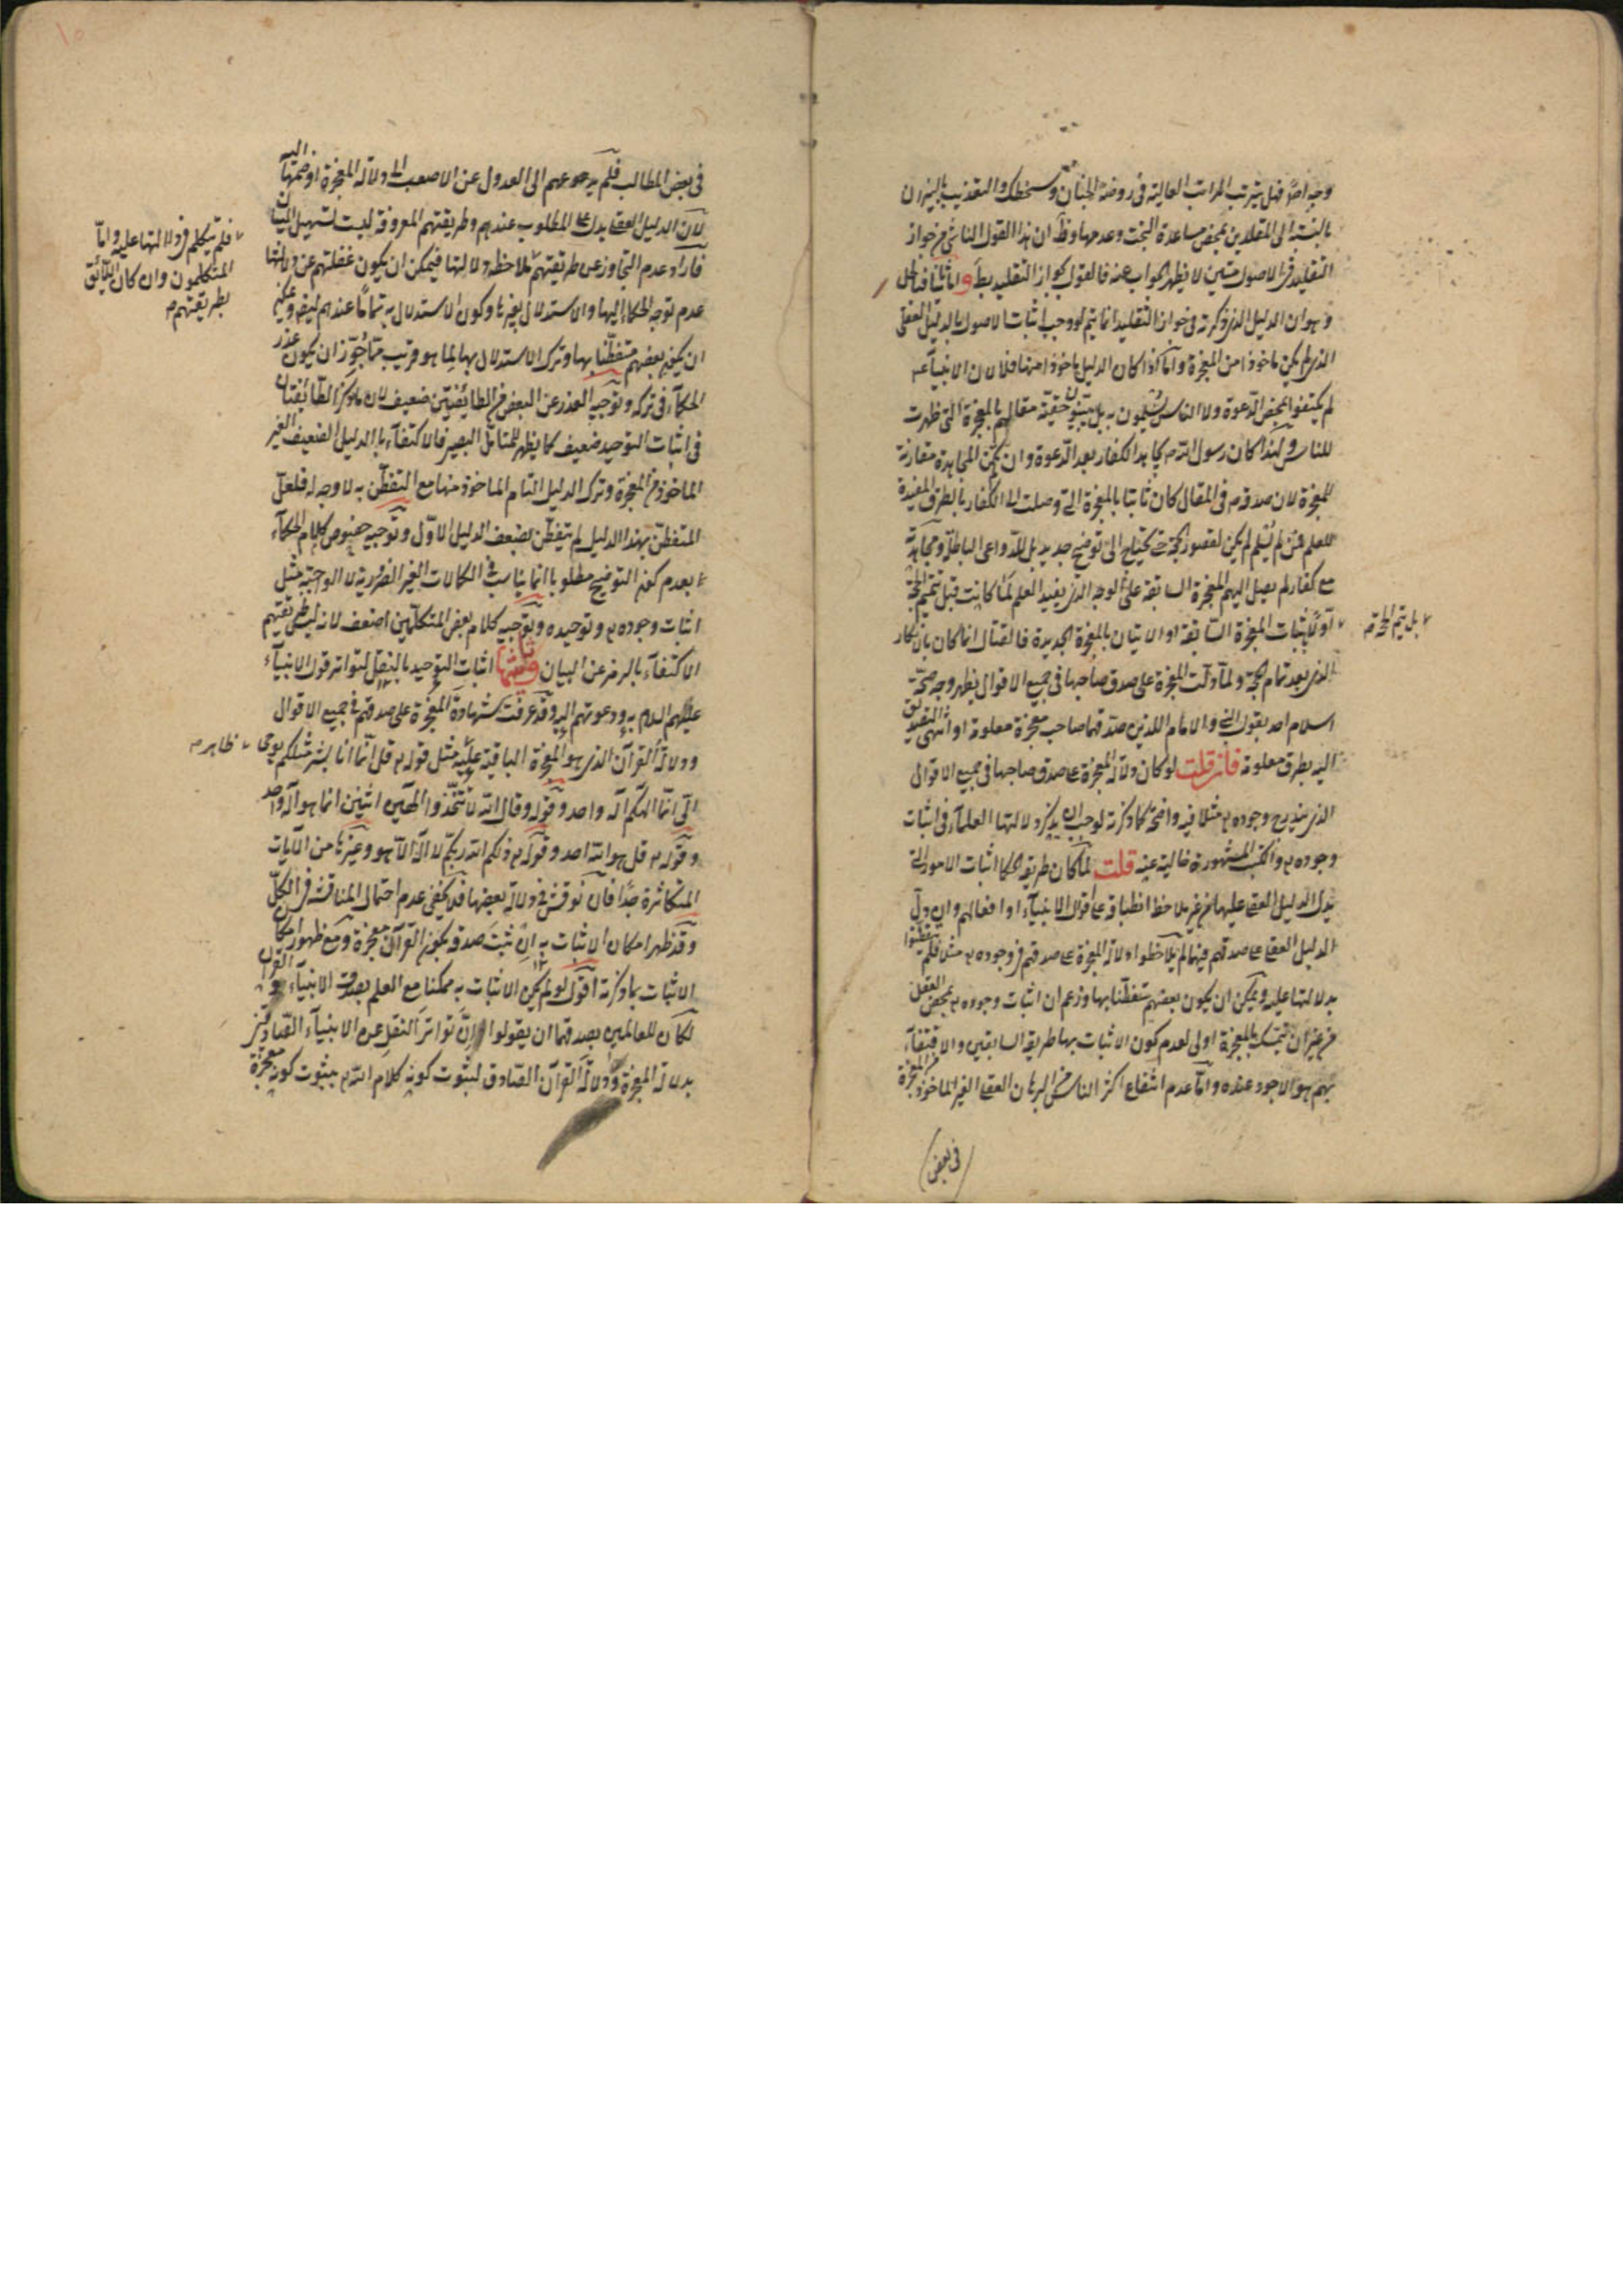 وجه اصلا فهل يترتب المراتب العالية في روضة الجنان وسخطك والتعذيب بالنيران
بالنسبة الى المقلدين بمحض مساعدة البخت وعدمها وظ ان هذا القول الناشي من جواز
التقليد في الاصول متين لا يظهر الجواب عنه فالقول بجواز التقليد بط واما ثانيا فبالحل
وهو ان الدليل الذي ذكرته في جواز التقليد انما يتم لو وجب اثبات الاصول بالدليل العقلي
الذي لم يكن ماخوذا من المعجزة واما اذا كان الدليل ماخوذا منها فلا لان الانبياء
لم يكتفوا بمحض الدعوة ولا الناس يسلمون به بل يبينون حقية مقالهم بالمعجزة التي ظهرت
للناس ولهذا كان رسول الله يجاهد الكفار بعد الدعوة وان لم يكن المجاهدة مقارنة
للمعجزة لان صدقه في المقال كان ثابتا بالمعجزة التي وصلت الى الكفار بالطرق المفيدة
للعلم فمن لم يسلم لم يكن لقصور الحجة حتى يحتاج الى توضيح جديد بل للدواعي الباطلة ومجاهدته
مع كفار لم يصل اليهم المعجزة السابقة على الوجه الذي يفيد العلم لما كانت قبل تتميم الحجة
بل يتم الحجة
اولا باثبات المعجزة السابقة او الاتيان بالمعجزة الجديدة فالقتال انما كان بانكار
الذي بعد تمام الحجة ولما دلت المعجزة على صدق صاحبها في جميع الاقوال يظهر وجه صحة
اسلام احد بقول النبي والامام اللذين صدقهما صاحب معجزة معلومة او انتهى التصديق
اليه بطرق معلومة فان قلت لو كان دلالة المعجزة على صدق صاحبها في جميع الاقوال
الذي يندرج وجوده مثلا فيه واضحة كما ذكرته لوجب ان يذكر دلالتها العلماء في اثبات
وجوده والكتب المشهورة خالية عنه قلت لما كان طريقة الحكما اثبات الامور التي
يدل الدليل العقلي عليها من غير ملاحظة انطباقه على اقوال الانبياء او افعالهم وان دل
الدليل العقلي على صدقهم فيها لم يلاحظوا دلالة المعجزة على صدقهم في وجوده مثلا فلم يتفطنوا
بدلالتها عليه ويمكن ان يكون بعضهم متفطنا بها وزعم ان اثبات وجوده بمحض العقل
من غير ان يتمسك بالمعجزة اولى لعدم كون الاثبات بها طريقة السابقين والاقتفاء
بهم هو الاجود عنده واما عدم انتفاع اكثر الناس من البرهان العقلي الغير الماخوذ من المعجزة
في بعض
في بعض المطالب فلم يدعوهم الى العدول عن الاصعب الى دلالة المعجزة او ضمها اليه
لان الدليل العقلي يدل على المطلوب عندهم وطريقتهم المعروفة ليست تسهيل البيان
فلم يتكلم في دلالتها عليه واما
المتكلمون وان كان اللائق
بطريقتهم
عدم توجه الحكماء اليها والاستدلال بغيرها وكون الاستدلال به تماما عندهم
ان يكون بعضهم متفطنا بها وترك الاستدلال بها لما هو قريب مما جوز ان يكون عذر
الحكماء في تركه وتوجيه العذر عن البعض من الطائفتين ضعيف لان ما ذكر الطائفتان
في اثبات التوحيد ضعيف كما يظهر للمتامل البصير فالاكتفاء بالدليل الضعيف الغير
الماخوذ من المعجزة وترك الدليل التام الماخوذ منها مع التفطن به لا وجه له فلعل
المتفطن بهذا الدليل لم يتفطن بضعف الدليل الاول وتوجيه خصوص كلام الحكماء
بعدم كون التوضيح مطلوبا انما يناسب في الكمالات الغير الضرورية لا الواجبة مثل
اثبات وجوده وتوحيده وتوجيه كلام بعض المتكلمين اضعف لانه ليس طريقتهم
الاكتفاء بالرمز عن البيان وثانيها اثبات التوحيد بالنقل لتواتر قول الانبياء
عليهم السلام به ودعوتهم اليه وقد عرفت شهادة المعجزة على صدقهم في جميع الاقوال
ودلالة القرآن الذي هو المعجزة الباقية عليه مثل قوله قل انما انا بشر مثلكم يوحى
ظاهر
الي انما الهكم اله واحد وقوله وقال الله لا تتخذوا الهين اثنين انما هو اله واحد
وقوله قل هو الله احد وقوله ذلكم الله ربكم لا اله الا هو وغيرها من الآيات
المتكاثرة جدا فان نوقش في دلالة بعضها فلا يخفى عدم احتمال المناقشة في الكل
وقد ظهر امكان الاثبات به ان ثبت صدقه بكون القرآن معجزة ومع ظهور امكان
الاثبات بما ذكرته اقول لو لم يكن الاثبات به ممكنا مع العلم بصدق الانبياء والقرآن
لكان للعالمين بصدقهما ان يقولوا ان تواتر النقل عن الانبياء الصادقين
بدلالة المعجزة ودلالة القرآن الصادق لثبوت كونه كلام الله بثبوت كونه معجزة